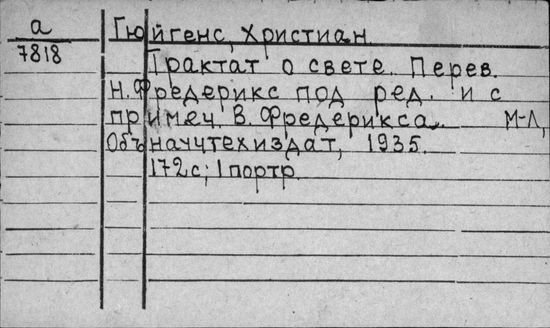 а
7818
Гюйгенс, Христиан
Трактат о свете. Перев.
Н. Фредерикс под ред. и с
примеч. В. Фредерикса. М-Л,
Объ научтехиздат, 1935.
172 с; 1 портр.